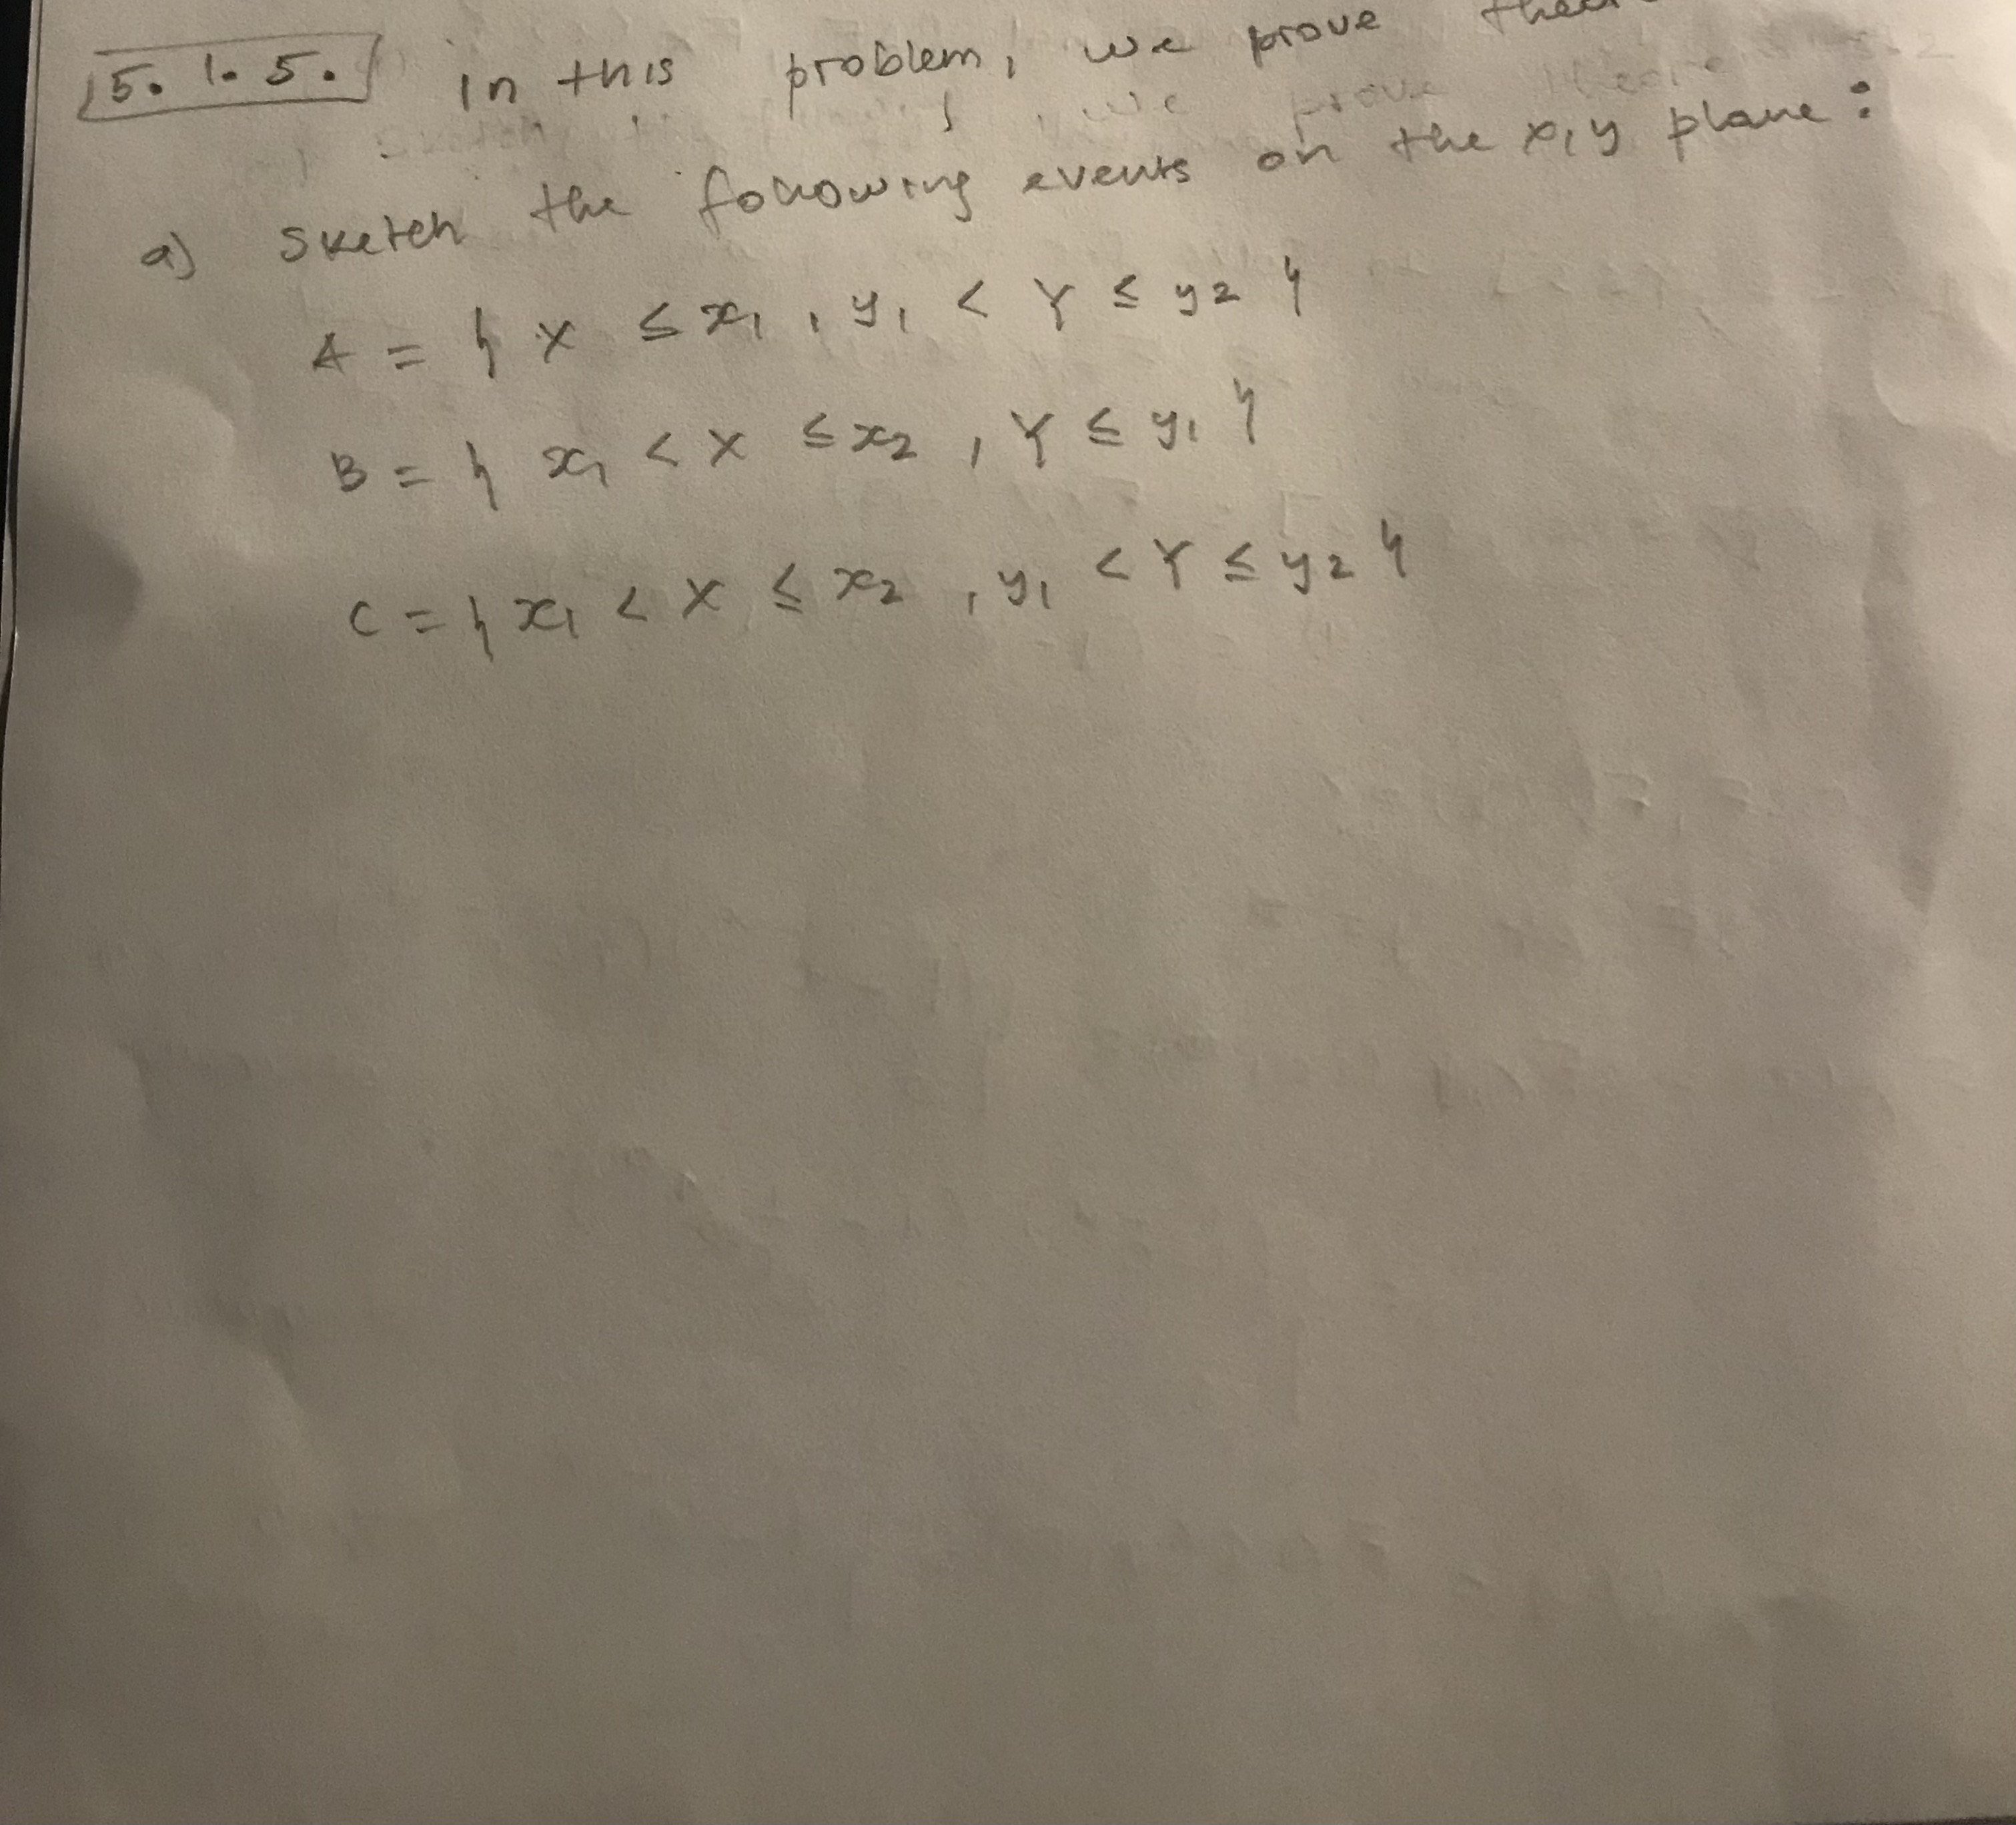 5.1.5. in this problem, we prove
a) sketch the following events on the x,y plane:
A = { X ≤ x₁ , y₁ < Y ≤ y₂ }
B = { x₁ < X ≤ x₂ , Y ≤ y₁ }
C = { x₁ < X ≤ x₂ , y₁ < Y ≤ y₂ }